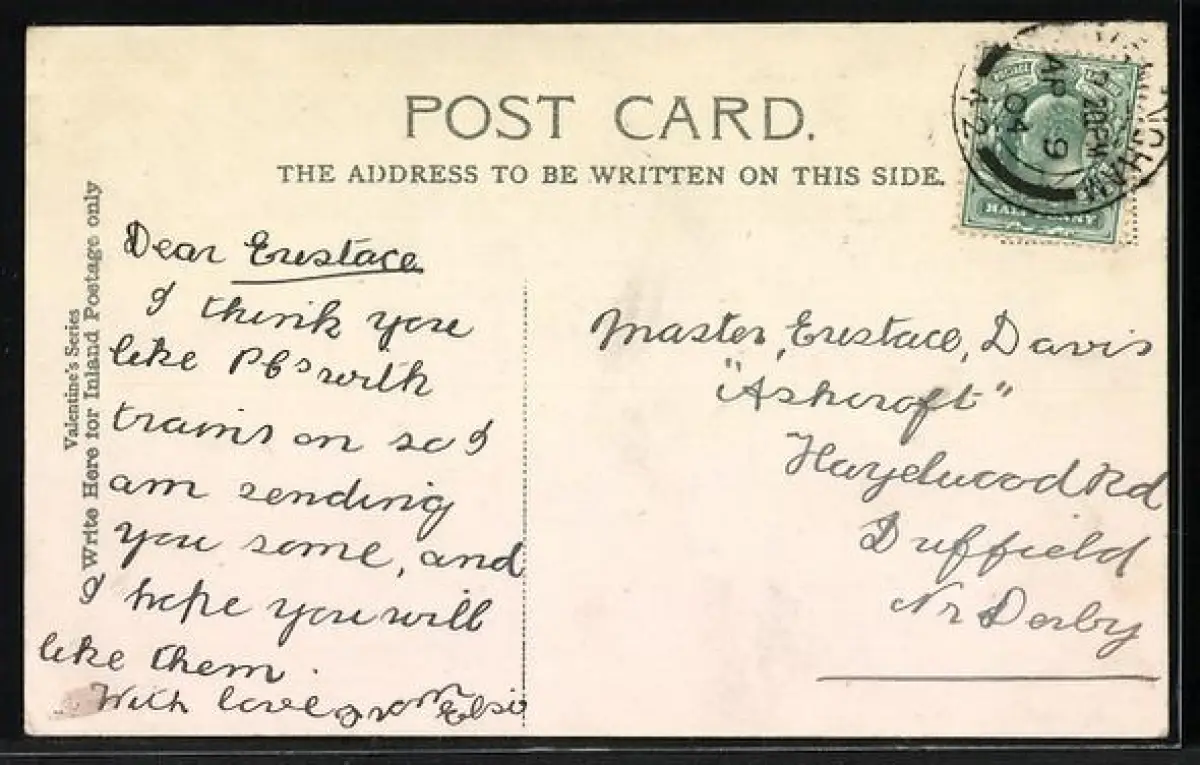 POST CARD.
THE ADDRESS TO BE WRITTEN ON THIS SIDE.
Valentine's Series
Write Here for Inland Postage only
Dear Eustace
I think you
like PCs with
trains on so I
am sending
you some, and
I hope you will
like them.
With love from Elsie
Master, Eustace, Davis
"Ashcroft"
Hazelwood Rd
Duffield
Nr Derby
HALFPENNY
AP 9
04
42